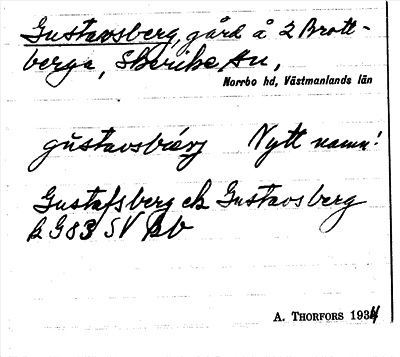 Gustavsberg, gård å 2 Brott-
berga, Skerike sn,
Norrbo hd, Västmanlands län
gustavsbärj Nytt namn!
Gustafsberg ek Gustavsberg
G 83 SV
A. THORFORS 1934